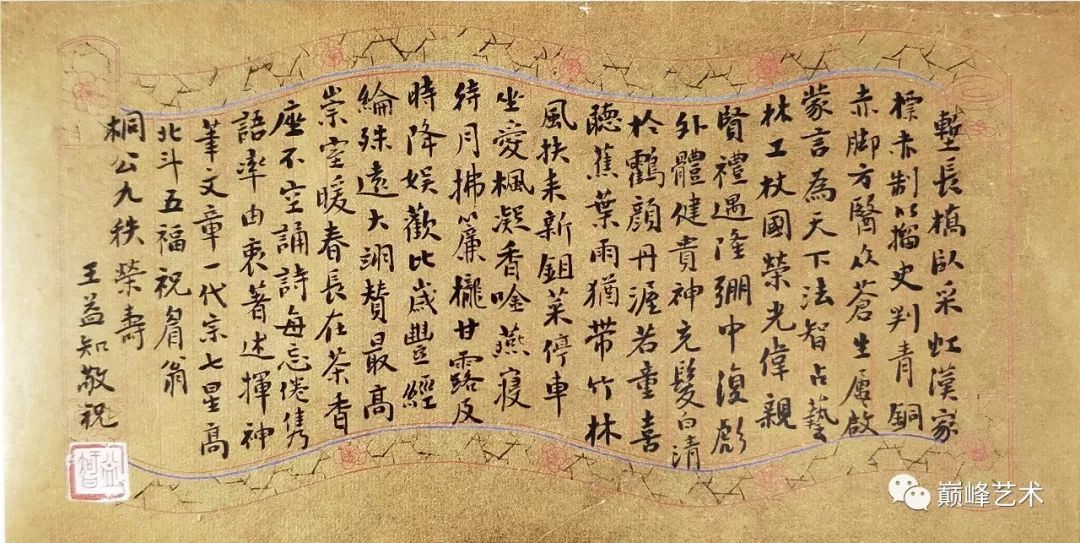 塹長橋臥采虹漢家
標赤制以籀史判青銅
赤脚方醫众蒼生屢啟
蒙言為天下法智占藝
林工杖國榮光偉親
賢禮遇隆弸中復彪
外體健貴神充髮白清
於鸖顔丹渥若童喜
聽蕉葉雨猶带竹林
風扶耒新鉏菜停車
坐愛楓凝香唫燕寝
待月拂簾櫳甘露及
時降娱歡比歲豐經
綸殊遠大翊贊最高
崇室暖春長在茶香
座不空誦詩每忘倦隽
語率由衷著述揮神
筆文章一代宗七星高
北斗五福祝眉翁
桐公九秩榮壽
王益知敬祝
益知
巅峰艺术